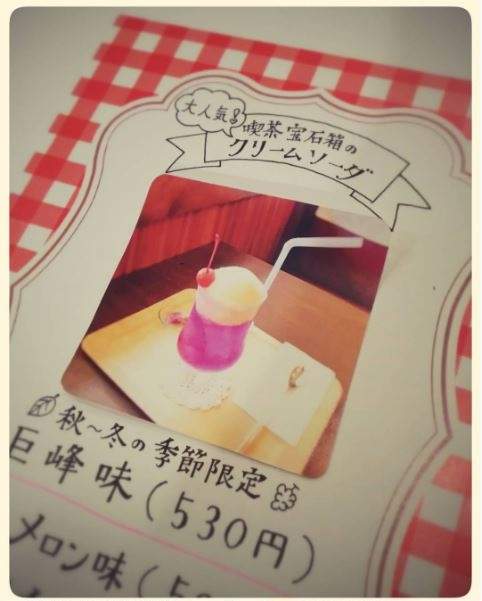 大人気!
喫茶宝石箱の
クリームソーダ
秋~冬の季節限定
巨峰味(530円)
メロン味(5